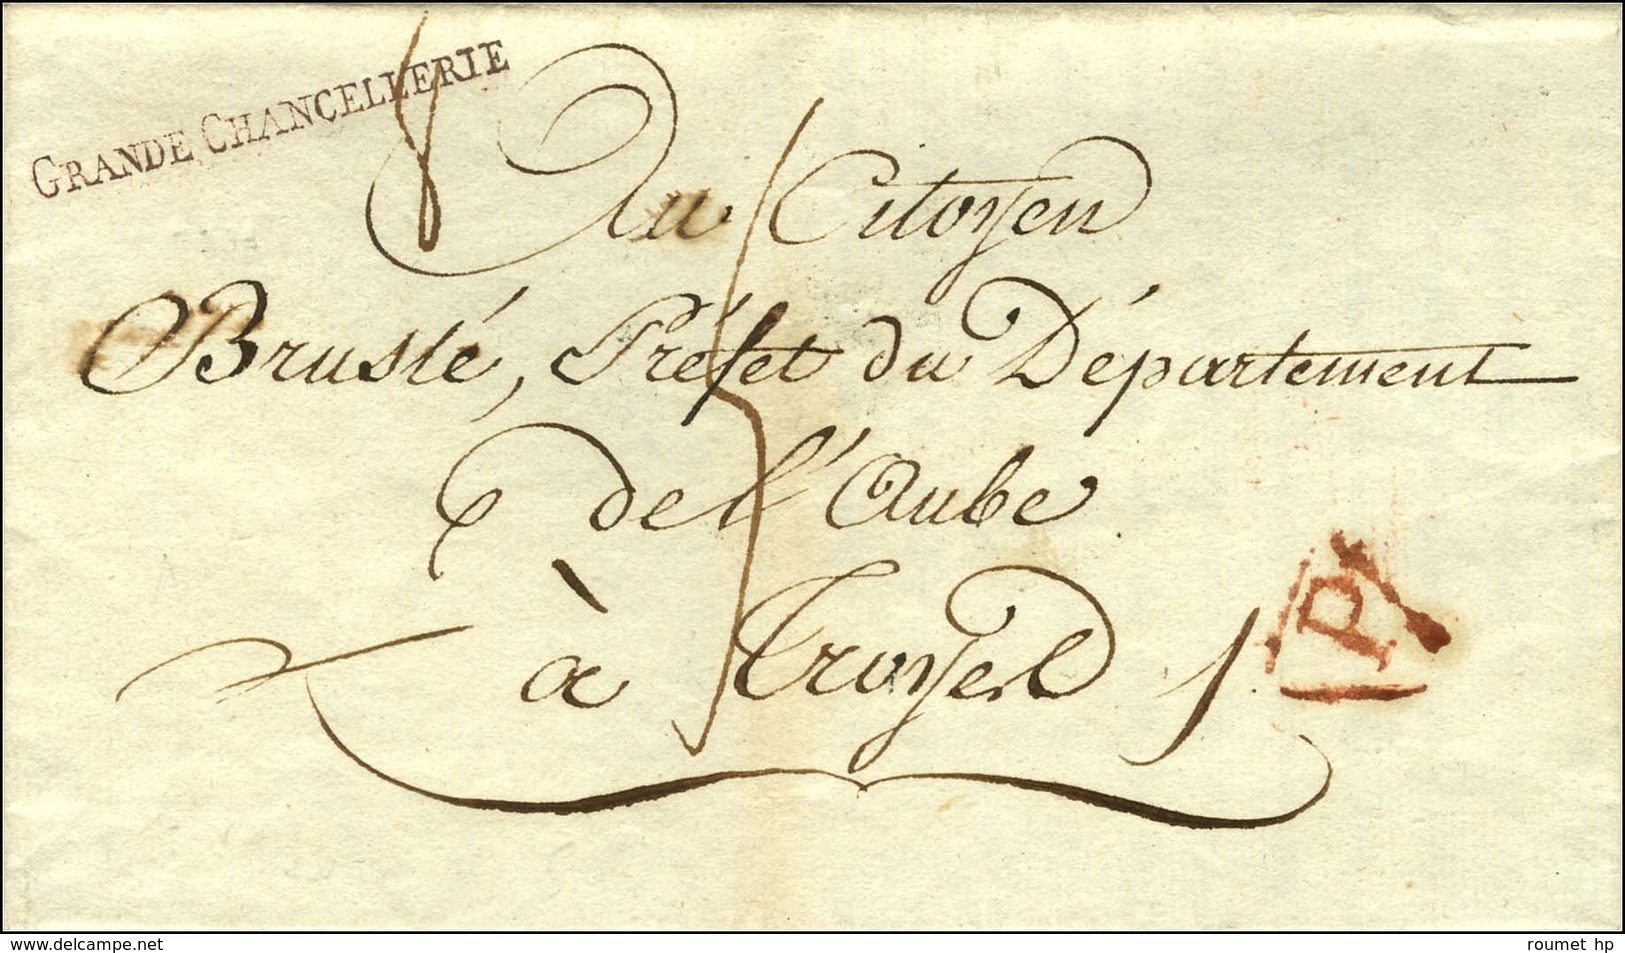 GRANDE CHANCELLERIE
Au Citoyen
Bruslé, Préfet du Département
de l'Aube
à Troyes
P
www.delcampe.net
roumet hp